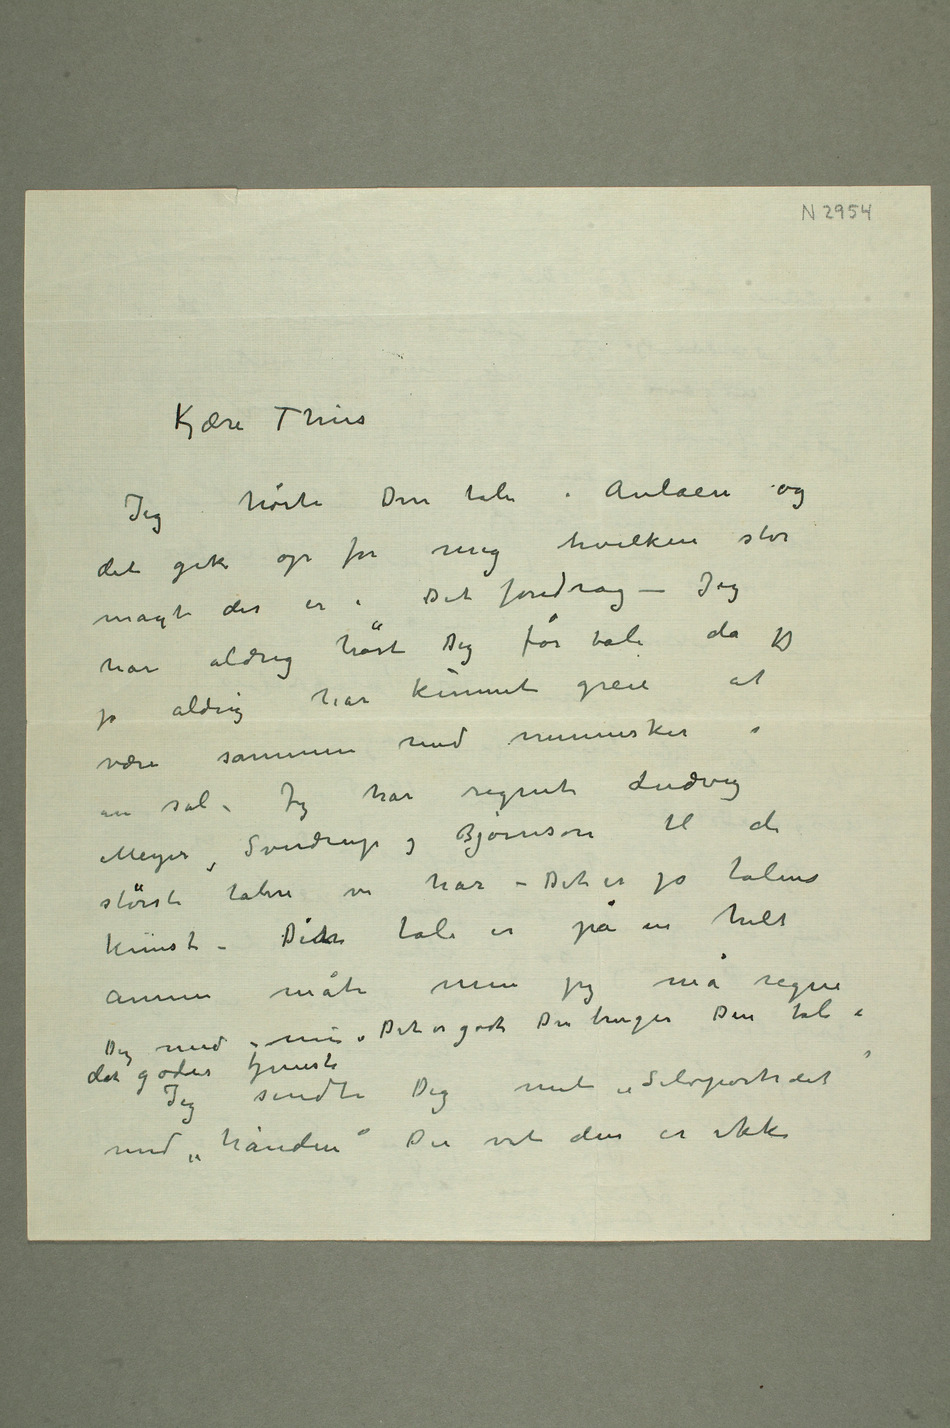 N 2954
Kjære Thiis
Jeg hørte Din tale i Aulaen og
det gik op for mig hvilken stor
magt der er i Dit foredrag – Jeg
har aldrig hørt Dig før tale da jeg
jo aldrig har kunnet greie at
være sammen med mennesker i
en sal – Jeg har regnet Ludvig
Meyer, Sverdrup og Bjørnson til de
største talere vi har – Det er jo talens
kunst – Din tale er på en helt
annen måte men jeg må regne
Dig med – Det er godt Du bruger Din tale i
det godes tjeneste
Jeg sendte Dig mit „Selvportrait
med „hånden" Du vet den er ikke